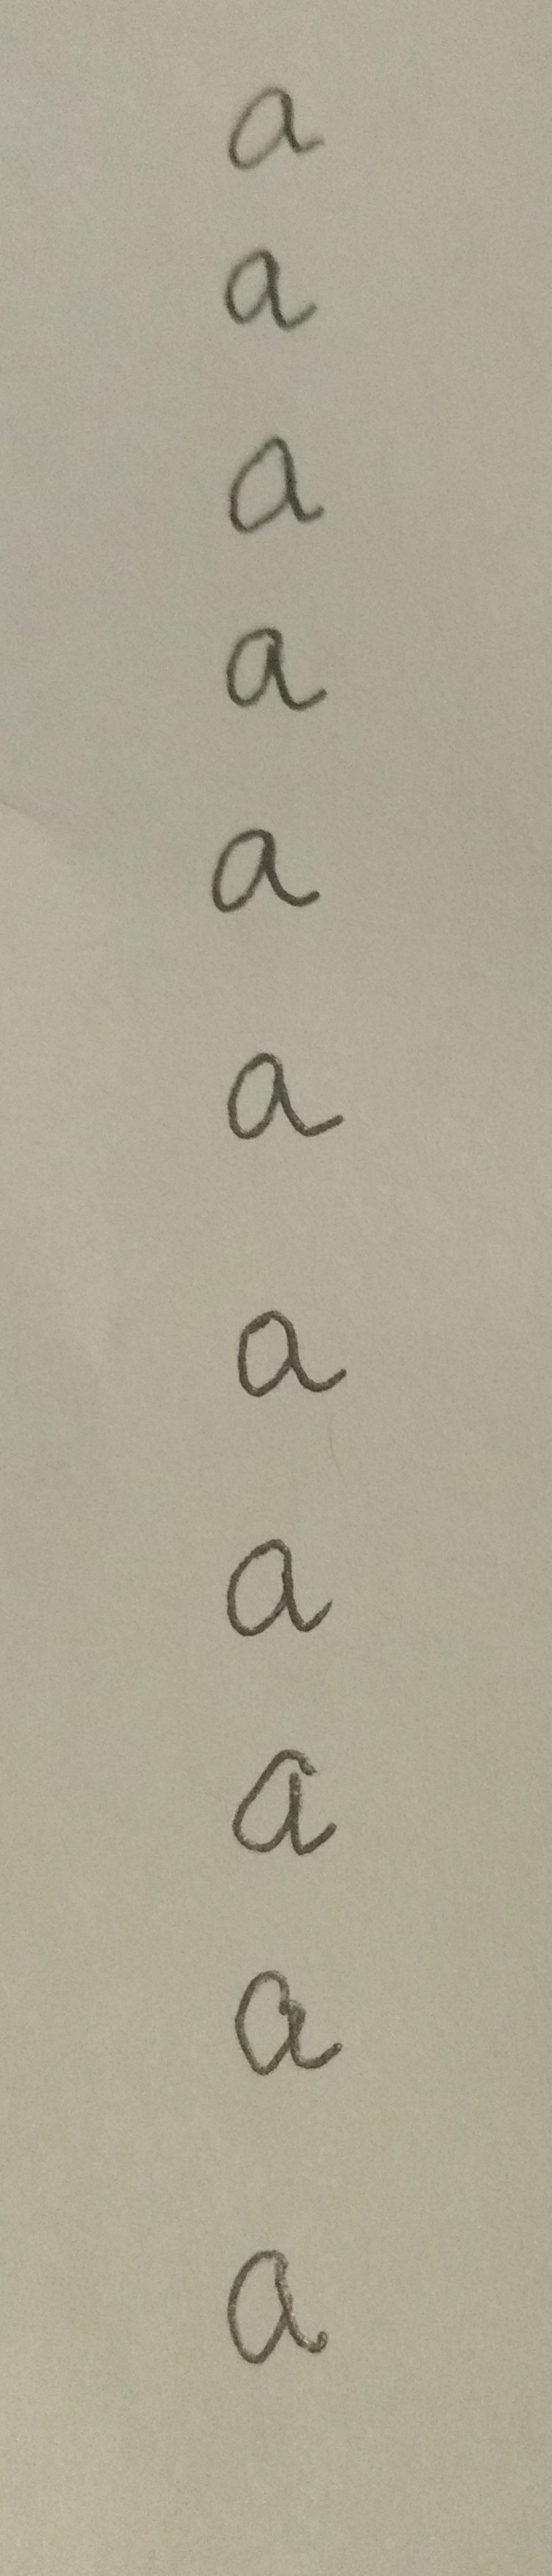 a
a
a
a
a
a
a
a
a
a
a